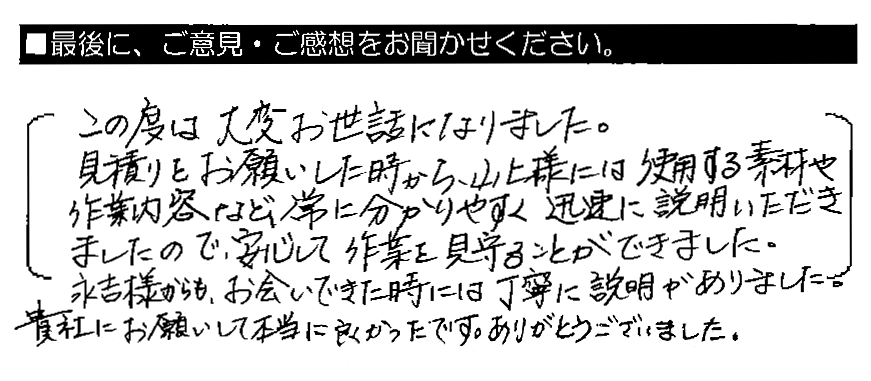 ■最後に、ご意見・ご感想をお聞かせください。
この度は大変お世話になりました。
見積りをお願いした時から、山上様には使用する素材や
作業内容など、常に分かりやすく迅速に説明いただき
ましたので、安心して作業を見守ることができました。
永吉様からも、お会いできた時には丁寧に説明がありました。
貴社にお願いして本当に良かったです。ありがとうございました。